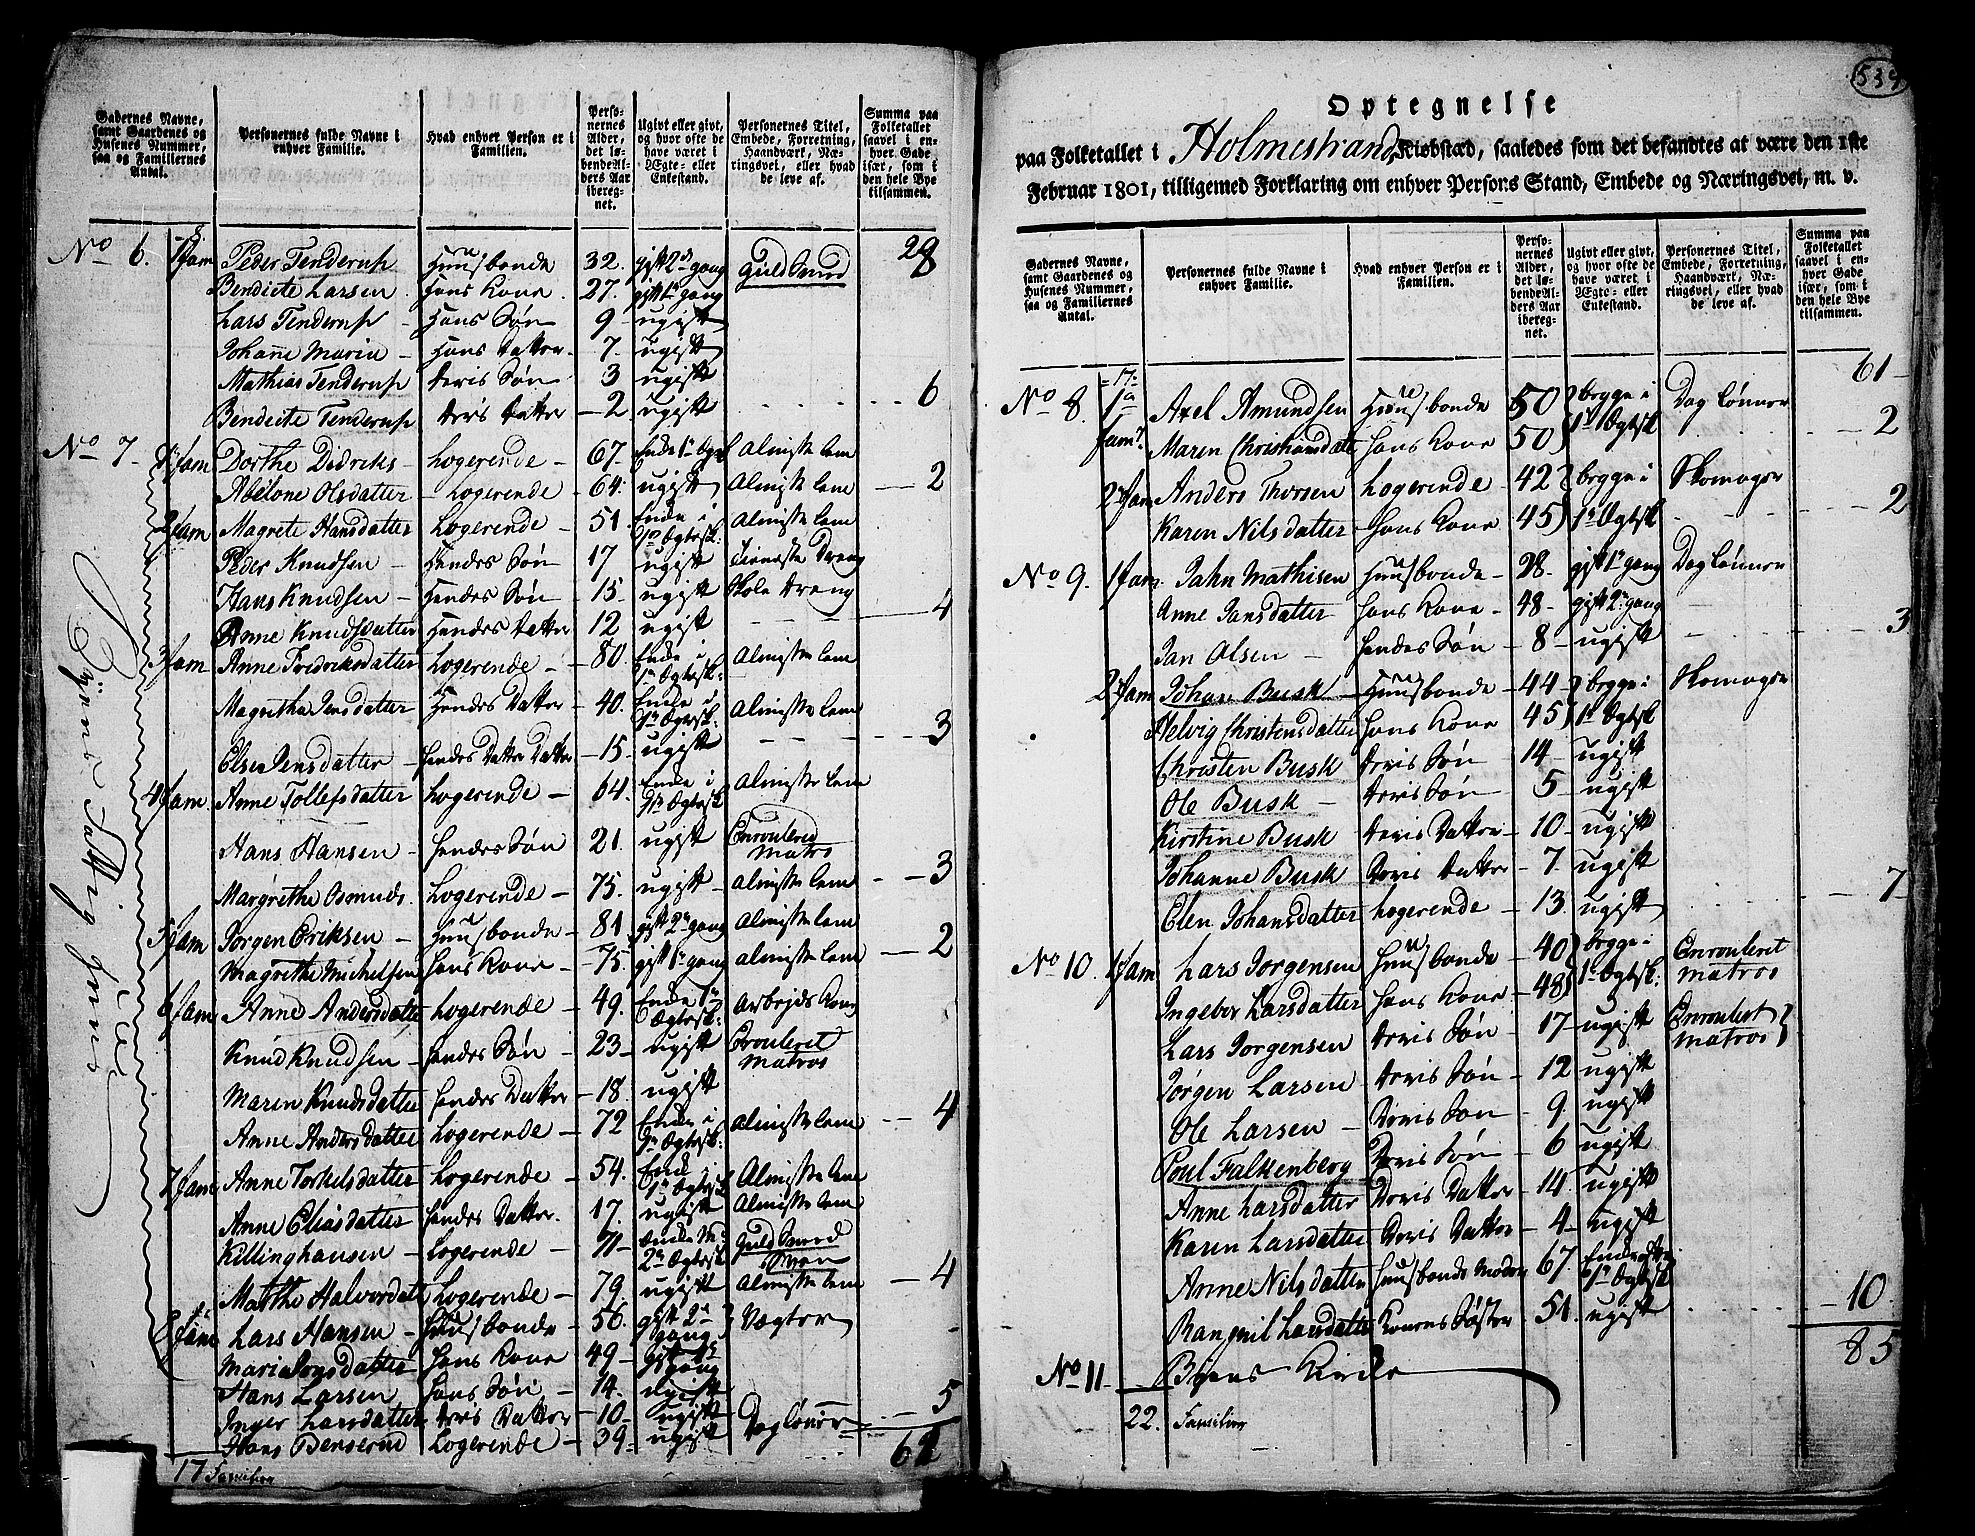 Gadernes Navne, samt Gaardenes og Husenes Nummer, saa og Familiernes Antal.
Personernes fulde Navne i enhver Familie.
Hvad enhver Person er i Familien.
Personernes Alder, det løbende Alders Aar iberegnet.
Ugivt eller givt, og hvor ofte de have været i Ægte- eller Enkestand.
Personernes Titel, Embede, Forretning, Haandværk, Næringsvei, eller hvad de leve af.
Summa paa Folketallet saavel i enhver Gade især, som i den hele Bye tilsammen.
28
No 6. 1 fam Peder Tenderup Huusbonde 32. gift 2 gang Guld Smed
Bendicte Larsen hans Kone 27. gift 1 gang
Lars Tenderup Hans Søn 9 ugift
Johanne Maria Hans Datter 7 ugift
Mathias Tenderup deris Søn 3 ugift
Bendicte Tenderup deris datter 2 ugift 6
No 7 1 fam Dorthe Dedriks Logerende 67 Enke 1 Almisse Lem
Abelone Olsdatter Logerende 64 ugift Almisse Lem 2
2 fam Magrete Hansdatter Logerende 51 Enke i 1 Ægtesk: Almisse Lem
Peder Knudsen Hendes Søn 17 ugift Tieneste Dreng
Hans Knudsen Hendes Søn 15 ugift Skole Dreng
Anne Knudsdatter Hendes datter 12 ugift 4
3 fam Anne Fredriksdatter Logerende 80 Enke i 1 Ægtesk: Almisse Lem
Magretha Jensdatter Hendes Datter 40. Enke i 1 Ægtesk: Almisse Lem
Else Jensdatter hendes Datter Datter 15. ugift 3
4 fam Anne Tollefsdatter Logerende 64 Enke i Ægtesk Almisse Lem
Hans Hansen hendes Søn 21. ugift Enrouleret Matros
Margrethe Osmuds. Logerende 75. ugift Almisse Lem 3
5 fam Jørgen Eriksen Huusbonde 81 gift 2 gang Almisse Lem
Magrethe Michelsen hans Kone 75. gift 1 gang Almisse Lem 2
6 fam Anne Andersdatter Logerende 49. Enke 1 Ægtesk: Arbejds Kone
Knud Knudsen hendes Søn 23 ugift Enrouleret Matros
Maren Knudsdatter hendes Datter 18. ugift
Anne Andersdatter Logerende 72 Enke i Ægtesk: Almisse Lem 4
7 fam Anne Torkelsdatter Logerende 54. Enke i 1 Ægtesk Almisse Lem
Anne Eliasdatter hendes Datter. 17. ugift Almisse Lem
Killinghausen Logerende 71 2 Ægtesk Guld Smed Svenn
Marthe Halvordat Logerende 79. ugift Almisse Lem 4
8 fam Lars Hansen Huusbonde 56. gift 2 gang Vægter
Maria hans Kone 49 gang
Hans Larsen hans Søn 14. ugift
Inger Larsdatter deris Datter 10 ugift
Hans Benserud Logerende 39 ugift Dag lønner 5
17 Familier
Bÿens Fattig Huus
534
Optegnelse
paa Folketallet i Holmestrand Kiøbstæd, saaledes som det befandtes at være den 1ste
Februar 1801, tilligemed Forklaring om enhver Persons Stand, Embede og Næringsvei, m. v.
Gadernes Navne, samt Gaardenes og Husenes Nummer, saa og Familiernes Antal.
Personernes fulde Navne i enhver Familie.
Hvad enhver Person er i Familien.
Personernes Alder, det løbende Alders Aar iberegnet.
Ugivt eller givt, og hvor ofte de have været i Ægte- eller Enkestand.
Personernes Titel, Embede, Forretning, Haandværk, Næringsvei, eller hvad de leve af.
Summa paa Folketallet saavel i enhver Gade især, som i den hele Bye tilsammen.
61
No 8. 1 fam Axel Amundsen Huusbonde 50 begge i Dag lønner
Maren Christiansdatt hans Kone 50 1 Ægtesk 2
2 fam Anders Thorsen Logerende 42 begge i Skomager
Karen Nilsdatter hans Kone 45 1 Ægtesk 2
No 9. 1 fam. Jahn Mathisen Huusbonde 28. gift 1 gang Dag Lønner
Anne Jansdatter hans Kone 48 gift 2 gang
Jan Olsen hendes Søn 8 ugift 3
2 fam Johan Busk Huusbonde 44 begge i Skomager
Helvig Christensdatter hans Kone 45 1 Ægtesk
Christen Busk deris Søn 14 ugift
Ole Busk deris Søn 5 ugift
Kirstine Busk deris Datter 10 ugift
Johanne Busk deris datter 7. ugift
Elen Johansdatter Logerende 13. ugift 7
No 10. 1 fam Lars Jørgensen Huusbonde 40 begge i Enrouleret Matros
Ingebor Larsdatter hans Kone 48 1 Ægtesk:
Lars Jørgensen deris Søn 17 ugift Enroulert Matros
Jørgen Larsen deris Søn 12 ugift
Ole Larsen deris Søn 9 ugift
Poul Falkenberg deris Søn 6 ugift
Anne Larsdatter deris Datter 14. ugift
Karen Larsdatter deris Datter 4 ugift
Anne Nilsdatter Huusbonds Moder 67. Enke 1 Ægtesk
Rangnil Larsdatter Konens Søster 51. ugift 10
85
No 11 Bÿens Kirke
22. Familier